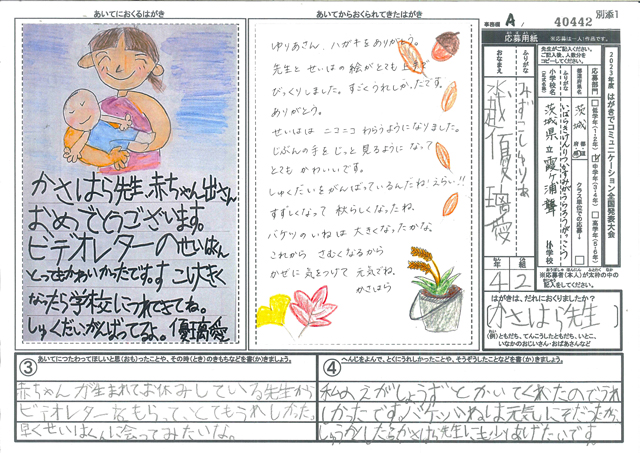 別添1
事務欄 A / 40442
あいてにおくるはがき
かさはら先生、赤ちゃん出さん
おめでとうございます。
ビデオレターのせいはん
とってもかわいかったです。すこし大きく
なったら学校につれてきてね。
しゅくだいがんばってるよ。優璃愛
あいてからおくられてきたはがき
ゆりあさん、ハガキをありがとう。
先生とせいはの絵がとても上手で
びっくりしました。すごくうれしかったです。
ありがとう。
せいはは ニコニコ わらうようになりました。
じぶんの手をじっと見るように なって
とても かわいいです。
しゅくだいをがんばっているんだね!えらい!!
すずしくなって 秋らしくなったね。
バケツのいねは 大きくなったかな。
これから さむくなるから
かぜに 気をつけて 元気でね。
かさはら
応募用紙
※応募は一人1作品です。
2023年度 はがきでコミュニケーション全国発表大会
先生がご記入ください。
ご記入後、人数分を
コピーしてください。
応募部門
低学年(1・2年)
中学年(3・4年)
高学年(5・6年)
クラス単位での応募
都道府県名
茨城
ふりがな
小学校名
(正式名称)
茨城県立霞ケ浦聾
小学校
ふりがな
おなまえ
優璃愛
4年
2
※応募者(本人)が太枠の中の
記入をしてください。
はがきは、だれにおくりましたか?
(かさはら先生)
(例)ともだち、てんこうしたともだち、いとこ、
いなかのおじいさん・おばあさんなど
③ あいてにつたわってほしいと思(おも)ったことや、その時(とき)のきもちなどを書(か)きましょう。
赤ちゃんが生まれてお休みしている先生から
ビデオレターをもらって、とてもうれしかった。
早くせいはくんに会ってみたいな。
④ へんじをよんで、とくにうれしかったことや、そうぞうしたことなどを書(か)きましょう。
私のえがじょうずとかいてくれたのでうれ
しかったです。バケツいねは元気にそだったから、
しゅうかくしたらかさはら先生にも少しあげたいです。